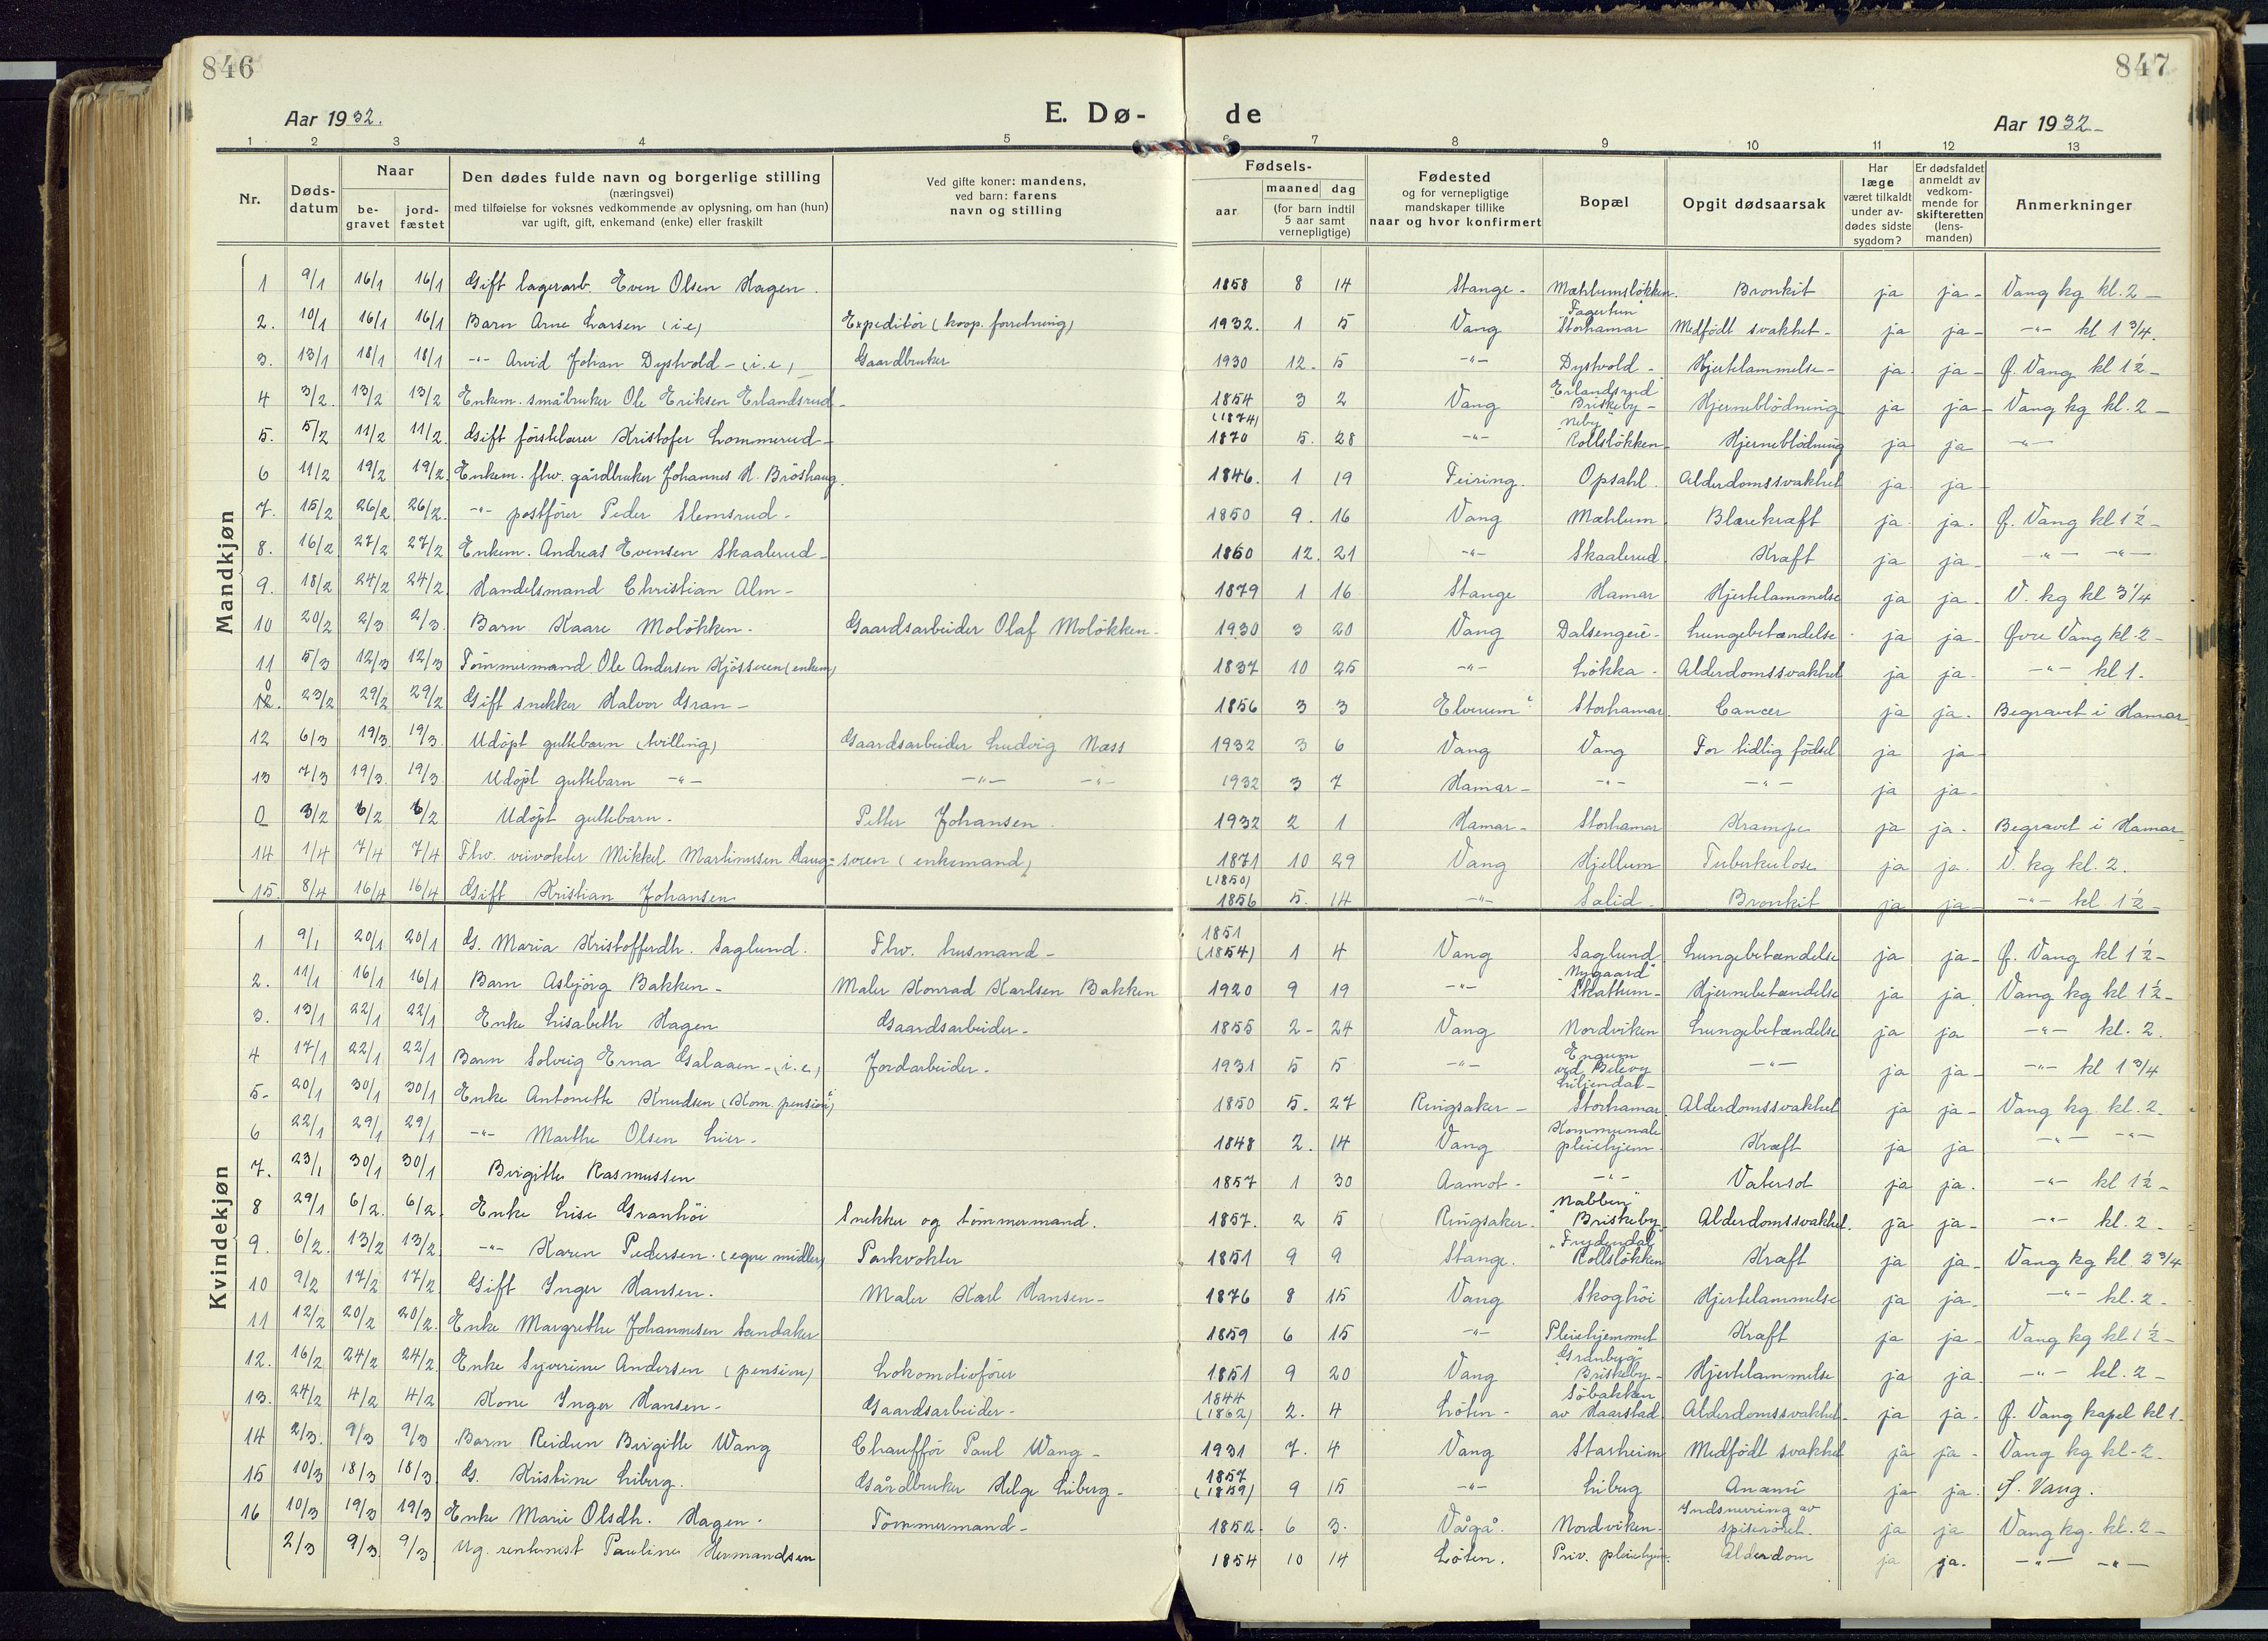 846
847
Aar 1932.
E. Dø-
de
Aar 1932-
1 2 3 4 5 6 7 8 9 10 11 12 13
Nr.
Døds-datum
Naar
be-gravet
jord-fæstet
Den dødes fulde navn og borgerlige stilling
(næringsvei)
med tilføielse for voksnes vedkommende av oplysning, om han (hun)
var ugift, gift, enkemand (enke) eller fraskilt
Ved gifte koner: mandens,
ved barn: farens
navn og stilling
Fødsels-
aar
maaned dag
(for barn indtil
5 aar samt
vernepligtige)
Fødested
og for vernepligtige
mandskaper tillike
naar og hvor konfirmert
Bopæl
Opgit dødsaarsak
Har
læge
været tilkaldt
under av-
dødes sidste
sygdom?
Er dødsfaldet
anmeldt av
vedkom-
mende for
skifteretten
(lens-
manden)
Anmerkninger
Mandkjøn
1 9/1 16/1 16/1 Gift lagerarb. Even Olsen Hagen. 1858 8 14 Stange - Mæhlumsløkken. Bronkit ja ja - Vang kg kl. 2 -
2. 10/1 16/1 16/1 Barn Arne Larsen (i.e) Expeditör (koop. forretning) 1932. 1 5 Vang "Fagertun" Storhamar Medfödt svakhet - ja ja - -"- kl 1 3/4.
3. 13/1 18/1 18/1 -"- Arvid Johan Dystvold - (i.e) Gaardbruker 1930 12. 5 -"- Dystvold - Hjertelammelse - ja ja - Ø. Vang kl 1½ -
4 3/2. 13/2 13/2 Enkem. småbruker Ole Eriksen Erlandsrud - 1854 3 2 Vang "Erlandsrud" Briskeby - Hjerneblödning ja ja - Vang kg kl. 2 -
5. 5/2 11/2 11/2. Gift förstelærer Kristofer Lommerud - (1874) 1870 5. 28 -"- "Neby" Rollsløkken - Hjerneblödning ja ja -"-
6 11/2 19/2 19/2. Enkem. fhv. gårdbruker Johannes H. Bröshaug. 1846. 1 19 Feiring. Opsahl. Alderdomssvakhet ja ja -
7. 15/2 26/2 26/2. -"- postförer Peder Slemsrud - 1850 9. 16 Vang Mæhlum Blærekræft ja. ja. Ø. Vang kl 1½ -
8. 16/2 27/2 27/2 Enkem. Andreas Evensen Skaalerud - 1860 12. 21 -"- Skaalerud Kraft ja ja - -"- -"-
9. 18/2 24/2 24/2 Handelsmand Christian Alm - 1879 1 16 Stange Hamar Hjertelammelse ja ja - V. kg kl 3 1/4
10 20/2 2/3 2/3. Barn Kaare Moløkken. Gaardsarbeider Olaf Moløkken - 1930 3 20 Vang Dalsengeie - Lungebetændelse - ja ja - Øvre Vang kl. 2 -
11 5/3 12/3 12/3 Tömmermand Ole Andersen Kjösseren (enkem) 1837 10 25 -"- Løkka - Alderdomssvakhet ja ja - -"- kl 1.
0 12. 23/2 29/2 29/2 Gift snekker Halvor Gran - 1856 3 3 Elverum Storhamar Cancer ja ja. Begravet i Hamar
12 6/3 19/3 19/3. Udøpt guttebarn (tvilling) Gaardsarbeider Ludvig Næss 1932 3 6 Vang Vang For tidlig födsel ja ja -
13 7/3 19/3. 19/3. Udøpt guttebarn -"- -"- -"- 1932 3 7 Hamar - -"- -"- ja ja -
0 3/2 6/2 6/2 Udøpt guttebarn. Petter Johansen 1932 2 1 Hamar - Storhamar Krampe ja ja - Begravet i Hamar
14 1/4 7/4 7/4 Fhv. veivokter Mikkel Martinusen Haug= sveen (enkemand) 1871 10 29 Vang Hjellum Tuberkulose ja ja. V. kg kl. 2.
15. 8/4 16/4 16/4 Gift Kristian Johansen (1850) 1856 5. 14 -"- Solid - Bronkit ja ja - -"- kl 1½ -
Kvindekjøn
1 9/1 20/1 20/1 G. Maria Kristofferdh. Saglund. Fhv. husmand - 1851 (1854) 1 4 Vang Saglund Lungebetændelse ja ja - Ø. Vang kl 1½ -
2. 11/1 16/1 16/1 Barn Asbjörg Bakken - Maler Konrad Karlsen Bakken 1920 9 19 -"- "Nygaard" Skattum - Hjernebetændelse ja ja. Vang kg kl 1½ -
3. 13/1 22/1 22/1 Enke Lisabeth Hagen Gaardsarbeider - 1855 2 - 24 Vang Nordviken Lungebetændelse ja ja -"- kl. 2.
4 17/1 22/1 22/1 Barn Solveig Erna Galaaen - (i.e) Jordarbeider - 1931 5 5 -"- Engum ved Bilevy -"- ja ja - -"- kl 1 3/4
5 - 20/1 30/1 30/1 Enke Antonette Knudsen (Kom. pension) 1850 5. 27 Ringsaker - Liljendal - Storhamar. Alderdomssvakhet ja ja - Vang kg. kl. 2.
6 22/1 29/1 29/1 -"- Marthe Olsen Lier - 1848 2. 14 Vang Kommunale pleiehjem Kræft ja ja -"- -"-
7. 23/1 30/1 30/1 Birgitte Rasmussen 1857 1 30 Aamot - -"- Vatersot ja ja. -"- kl 1½ -
8 29/1 6/2. 6/2. Enke Lise Granhöi Snekker og tømmermand. 1857. 2 5 Ringsaker. "Nabben" Briskeby - Alderdomssvakhet. ja ja - -"- kl. 2 -
9. 6/2. 13/2 13/2. -"- Karen Pedersen. (egne midler) Parkvokter 1851 9 9 Stange. "Frydendal" Rollsløkken Kraft ja ja - Vang kg kl. 2 3/4
10 9/2 17/2 17/2. Gift Inger Hansen. Maler Karl Hansen - 1876 8 15 Vang Skoghöi Hjertelammelse ja ja. -"- kl. 2 -
11 12/2 20/2 20/2. Enke Margrethe Johannesen Sandaker 1859 6 15 -"- Pleiehjemmet Kraft ja ja - Vang kg kl 1½ -
12. 16/2 24/2 24/2. Enke Syverine Andersen (pension) Lokomotivförer 1851 9 20 Vang "Granbyg" Briskeby - Hjertelammelse ja ja. -"- kl. 2 -
13. 24/2 4/2 4/2 Kone Inger Hansen - Gaardsarbeider - 1844 (1862) 2. 4 Løten - Söbakken av Haarstad Alderdomssvakhet - ja ja - Ø. Vang kapel kl 1 -
14 2/3. 9/3 9/3 Barn Reidun Birgitte Wang Chauffór Paul Wang - 1931 7. 4 Vang Starheim Medfödt svakhet ja ja - Vang kg kl - 2 -
15 10/3 18/3 18/3 G. Kristine Liberg. Gårdbruker Helge Liberg - 1857 (1859) 9 15 -"- Liberg Anæmi ja ja. Ø. Vang.
16 10/3 19/3 19/3 Enke Marie Olsdh. Hagen. Tømmermand - 1852. 6 3. Vågå. Nordviken. Indsnevring av spiserøret. ja ja Vang kg. kl. 2 -
2/3 9/3. 9/3. Ug. rentenist Pauline Hermandsen 1854 10 14 Løten. Priv. pleiehjem. Alderdom ja ja. -"- -"-